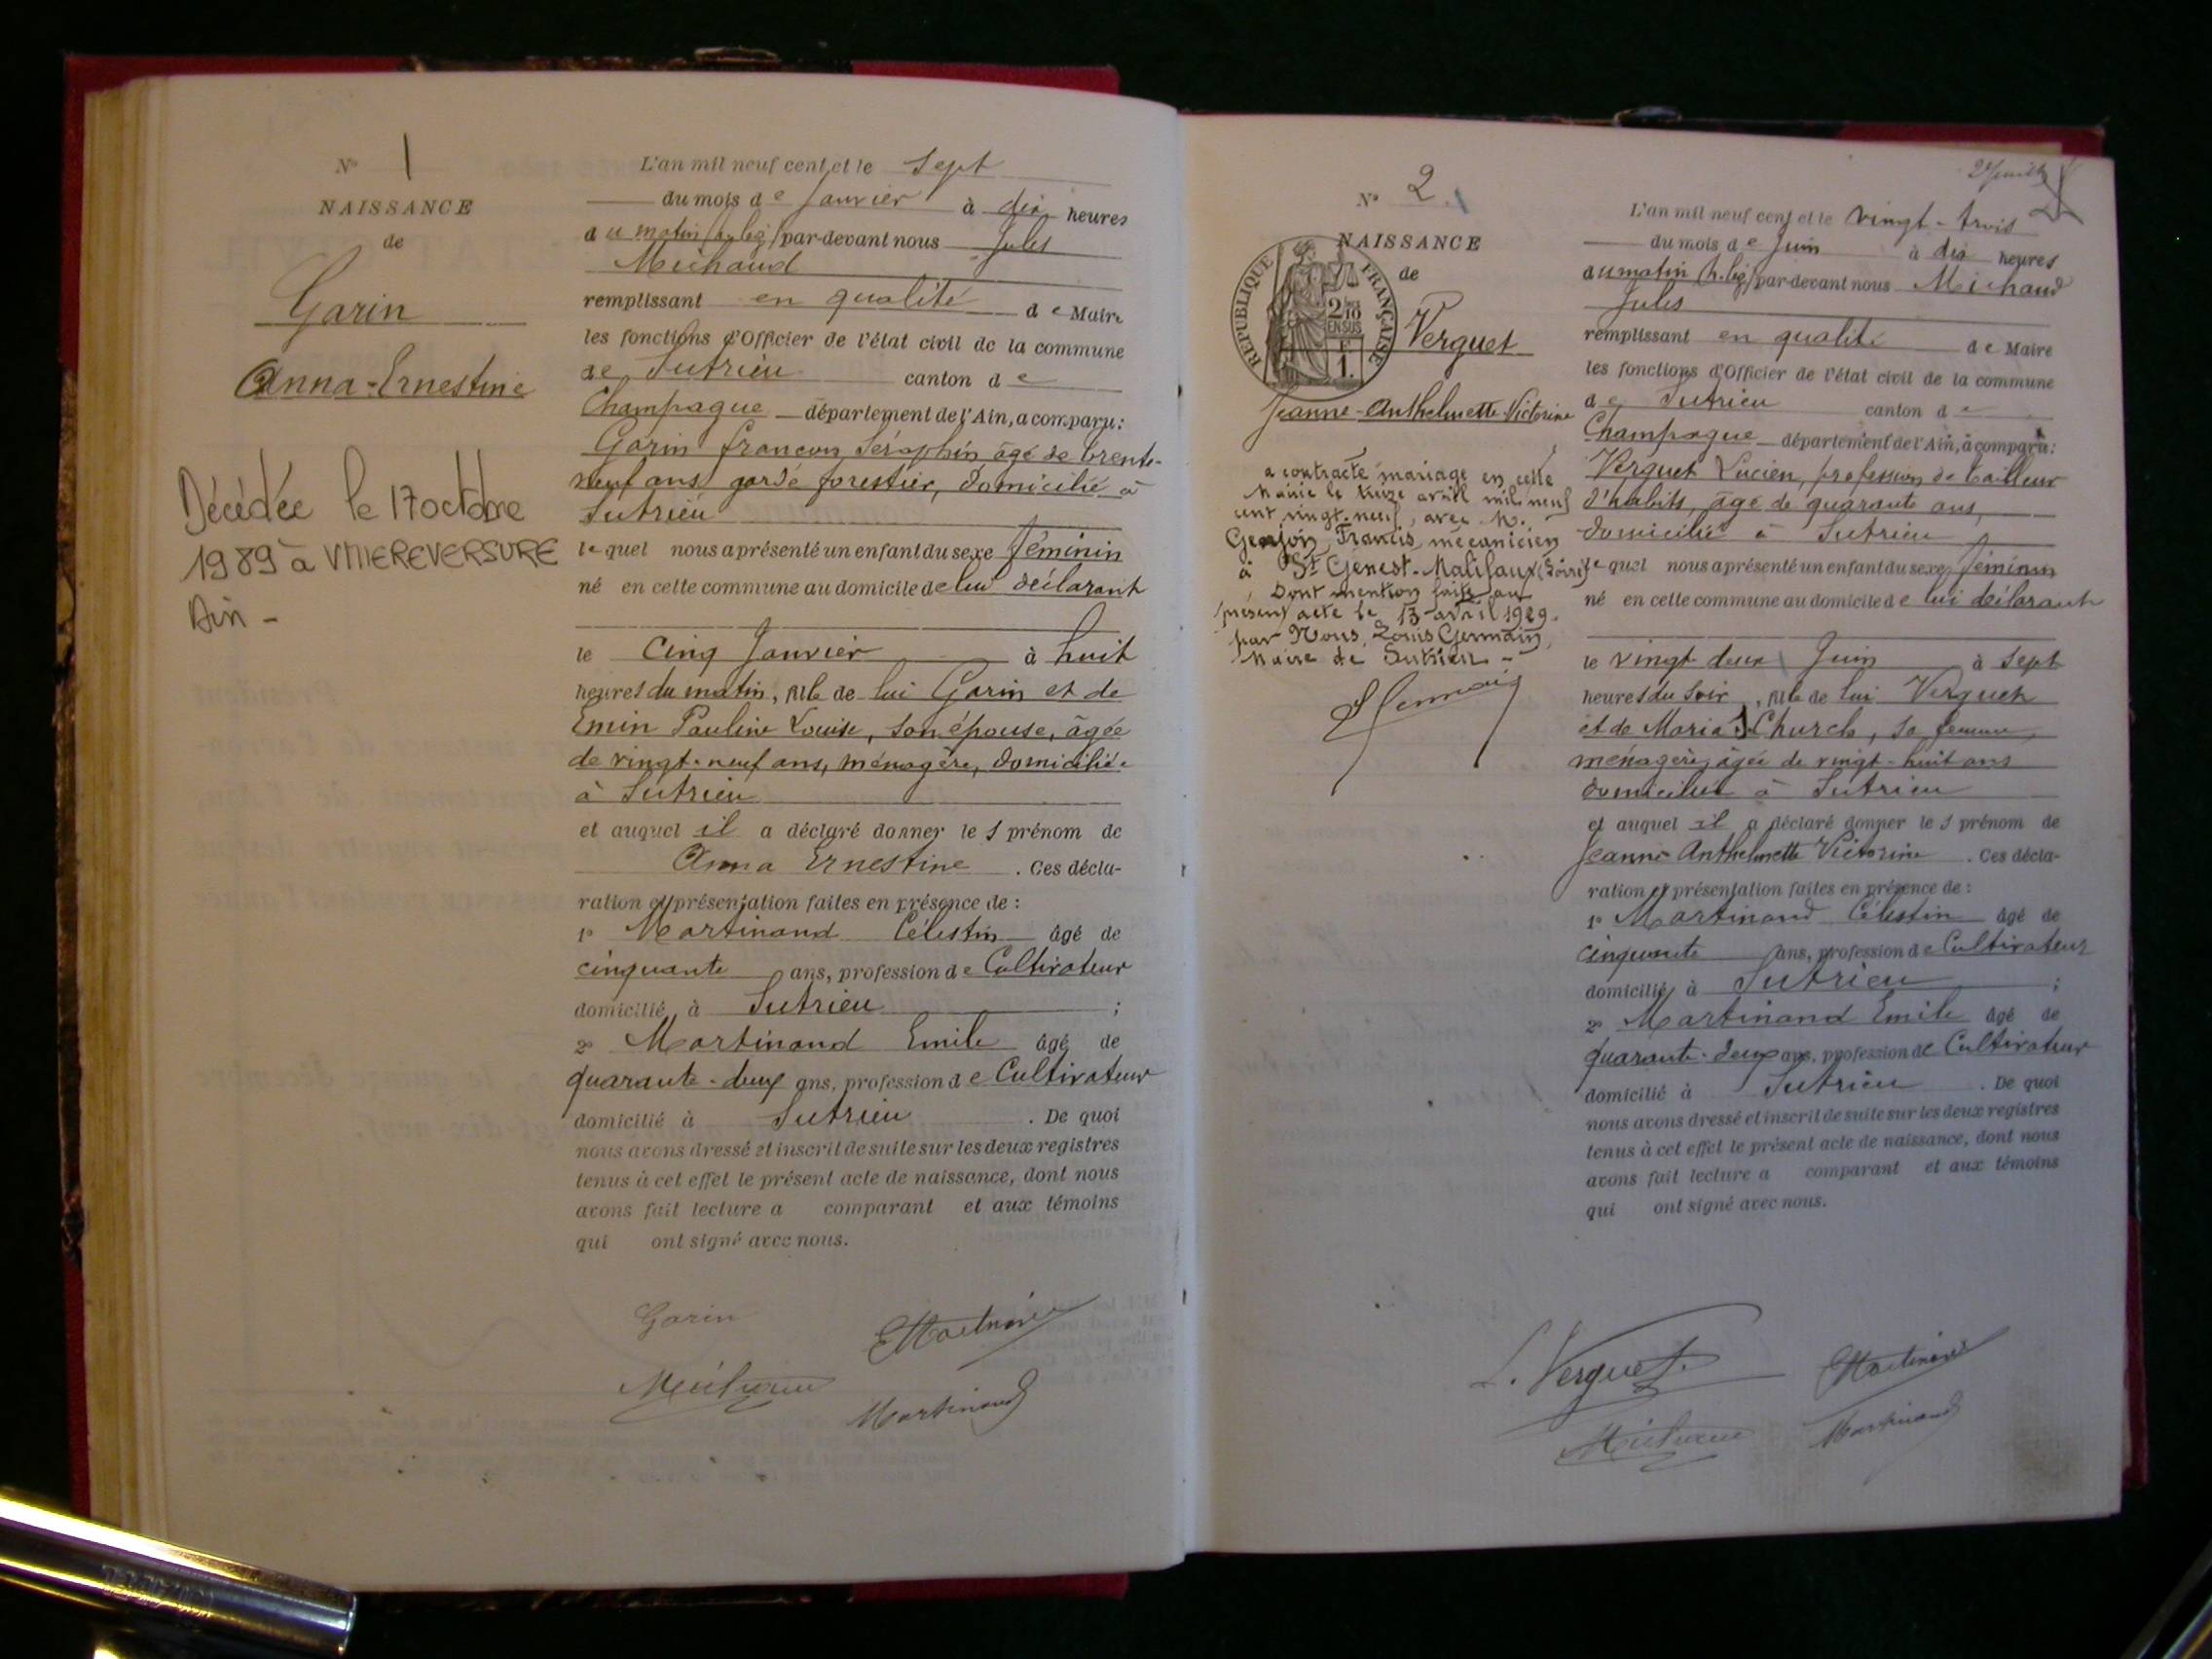 N° 1
NAISSANCE
de
Garin
Anna-Ernestine
Décédée le 17 octobre
1989 à VILLEREVERSURE
Ain -
L'an mil neuf cent, et le sept
du mois de Janvier à dix heures
du matin par-devant nous Jules
Michaud
remplissant en qualité de Maire
les fonctions d'Officier de l'état civil de la commune
de Sutrieu canton de
Champagne département de l'Ain, a comparu:
Garin françois Séraphin âgé de trente-
neuf ans garde forestier, domicilié à
Sutrieu
lequel nous a présenté un enfant du sexe féminin
né en cette commune au domicile de lui déclarant
le cinq Janvier à huit
heures du matin, fille de lui Garin et de
Emin Pauline Louise, son épouse, âgée
de vingt-neuf ans, ménagère, domiciliée
à Sutrieu
et auquel il a déclaré donner les prénom de
Anna Ernestine . Ces décla-
ration et présentation faites en présence de :
1° Martinand Célestin âgé de
cinquante ans, profession de Cultivateur
domicilié à Sutrieu ;
2° Martinand Emile âgé de
quarante-deux ans, profession de Cultivateur
domicilié à Sutrieu . De quoi
nous avons dressé et inscrit de suite sur les deux registres
tenus à cet effet le présent acte de naissance, dont nous
avons fait lecture a comparant et aux témoins
qui ont signé avec nous.
Garin
Martinand
N° 2
NAISSANCE
de
REPUBLIQUE FRANÇAISE
2/10
EN SUS
1.
Verguet
Jeanne-Anthelmette-Victorine
a contracté mariage en cette
Mairie le treize avril mil neuf
cent vingt-neuf, avec M.
Francis, mécanicien
à St Genest-Malifaux (Loire)
Dont mention faite au
présent acte le 13 avril 1929.
par Nous, Louis Germain,
Maire de Sutrieu -
L'an mil neuf cent et le vingt-trois
du mois de Juin à dix heures
du matin par-devant nous Michaud
Jules
remplissant en qualité de Maire
les fonctions d'Officier de l'état civil de la commune
de Sutrieu canton de
Champagne département de l'Ain, a comparu:
Verguet Lucien, profession de tailleur
d'habits, âgé de quarante ans,
domicilié à Sutrieu
lequel nous a présenté un enfant du sexe féminin
né en cette commune au domicile de lui déclarant
le vingt-deux Juin à sept
heures du soir, fille de lui Verguet
et de Maria sa femme,
ménagère, âgée de vingt-huit ans
domiciliée à Sutrieu
et auquel il a déclaré donner les prénom de
Jeanne Anthelmette Victorine . Ces décla-
ration et présentation faites en présence de :
1° Martinand Célestin âgé de
cinquante ans, profession de Cultivateur
domicilié à Sutrieu ;
2° Martinand Emile âgé de
quarante-deux ans, profession de Cultivateur
domicilié à Sutrieu . De quoi
nous avons dressé et inscrit de suite sur les deux registres
tenus à cet effet le présent acte de naissance, dont nous
avons fait lecture a comparant et aux témoins
qui ont signé avec nous.
L. Verguet.
Martinand